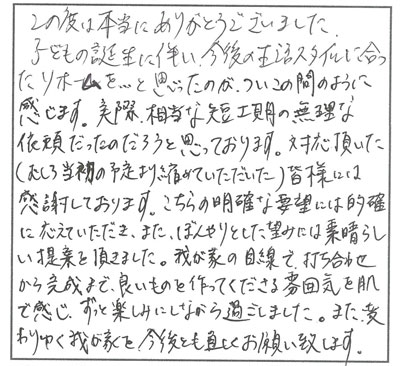 この度は本当にありがとうございました。
子どもの誕生に伴い、今後の生活スタイルに合っ
たリホームを…と思ったのが、ついこの間のように
感じます。実際、相当な短工期の無理な
依頼だったのだろうと思っております。対応頂いた
(むしろ当初の予定より縮めていただいた)皆様には
感謝しております。こちらの明確な要望には的確
に応えていただき、また、ぼんやりとした望みには素晴らし
い提案を頂きました。我が家の目線で、打ち合わせ
から完成まで、良いものを作ってくださる雰囲気を肌
で感じ、ずっと楽しみにしながら過ごしました。また、変
わりゆく我が家を、今後とも宜しくお願い致します。